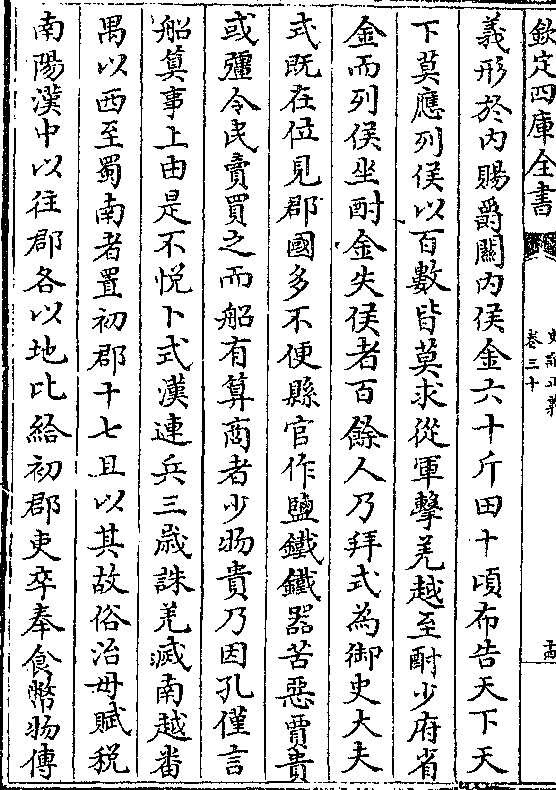 欽定四庫全書
史記正義
卷三十
義形於内賜爵關内侯金六十斤田十頃布告天下天
下莫應列侯以百數皆莫求從軍擊羌越至酎少府省
金而列侯坐酎金失侯者百餘人乃拜式為御史大夫
式既在位見郡國多不便縣官作鹽鐵鐵器苦惡賈貴
或彊令民賣買之而船有算商者少物貴乃因孔僅言
船算事上由是不悅卜式漢連兵三歲誅羌滅南越番
禺以西至蜀南者置初郡十七且以其故俗治毋賦税
南陽漢中以往郡各以地比給初郡吏卒奉食幣物傳